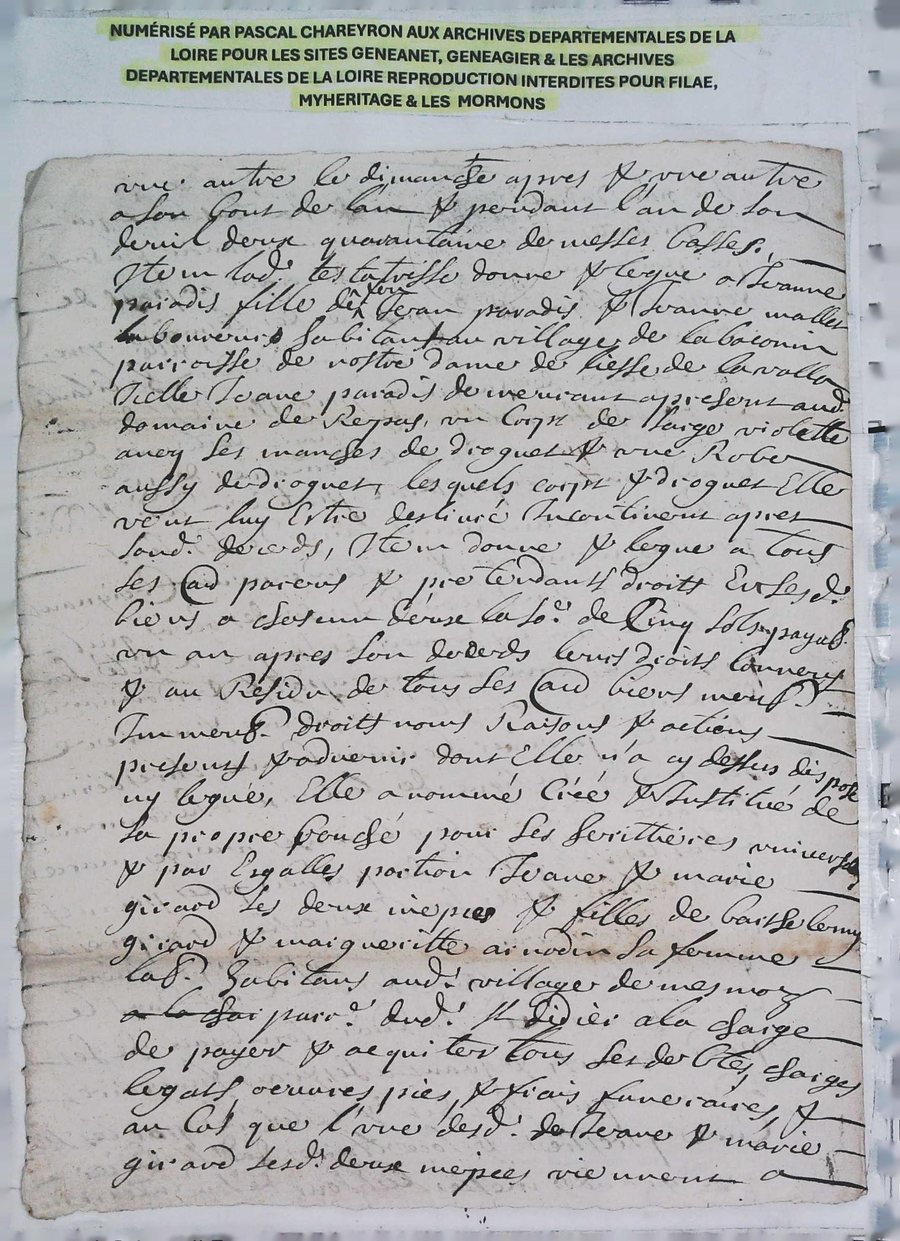 NUMÉRISÉ PAR PASCAL CHAREYRON AUX ARCHIVES DEPARTEMENTALES DE LA
LOIRE POUR LES SITES GENEANET, GENEAGIER & LES ARCHIVES
DEPARTEMENTALES DE LA LOIRE REPRODUCTION INTERDITES POUR FILAE,
MYHERITAGE & LES MORMONS
vne autre le dimanche apres & vne autre
a son bout de lan & pendant l'an de son
deuil deux quarantaine de messes basses.
Item lad.e testatrisse donne & legue a Jeanne
paradis fille de feu Jean paradis & Jeanne mallet
laboureurs habitans au village de
parroisse de nostre dame de liesse de lavalla
Icelle Jeane paradis demeurant apresent aud.
domaine de Repas, vn Corps de sarge violette
avec ses manches de droguet & vne Robe
aussy de droguet, lesquels corps & droguet Elle
veut luy Estre deslivré Incontinent apres
sond. deceds, Item donne & legue a tous
ses aud parens & pretendants droits En ses d.
biens a chascun d'eux la so.e de Cinq sols payab.
vn an apres son deceds leurs droits
& au Residu de tous ses aud biens meub.
Immeub. droits noms Raisons & actions
presents & advenir dont Elle n'a cy dessus disposé
ny legué, Elle a nommé Créé & Institué de
sa propre bouche pour ses heritieres universelles
& par Esgalles portion Jeane & marie
girard ses deux niepces & filles de barthelemy
girard & margueritte arnodin sa femme
lab.r habitans aud. village de mesmoz
a la char parr.e dud. st didier a la charge
de payer & acquiter tous ses debtes, charges
legats, oeuvres pies, & frais funeraires, &
au Cas que l'vne desd. de Jeane & marie
girard sesd. deux niepces viennent a